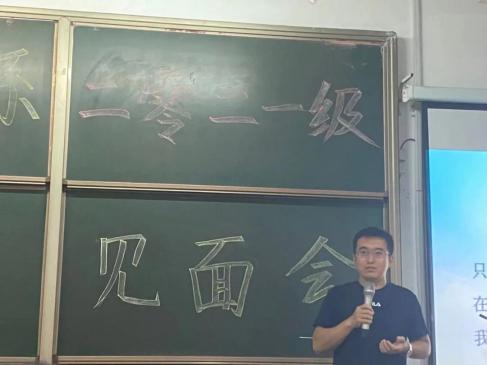 二零二一级
见面会
只
在
我